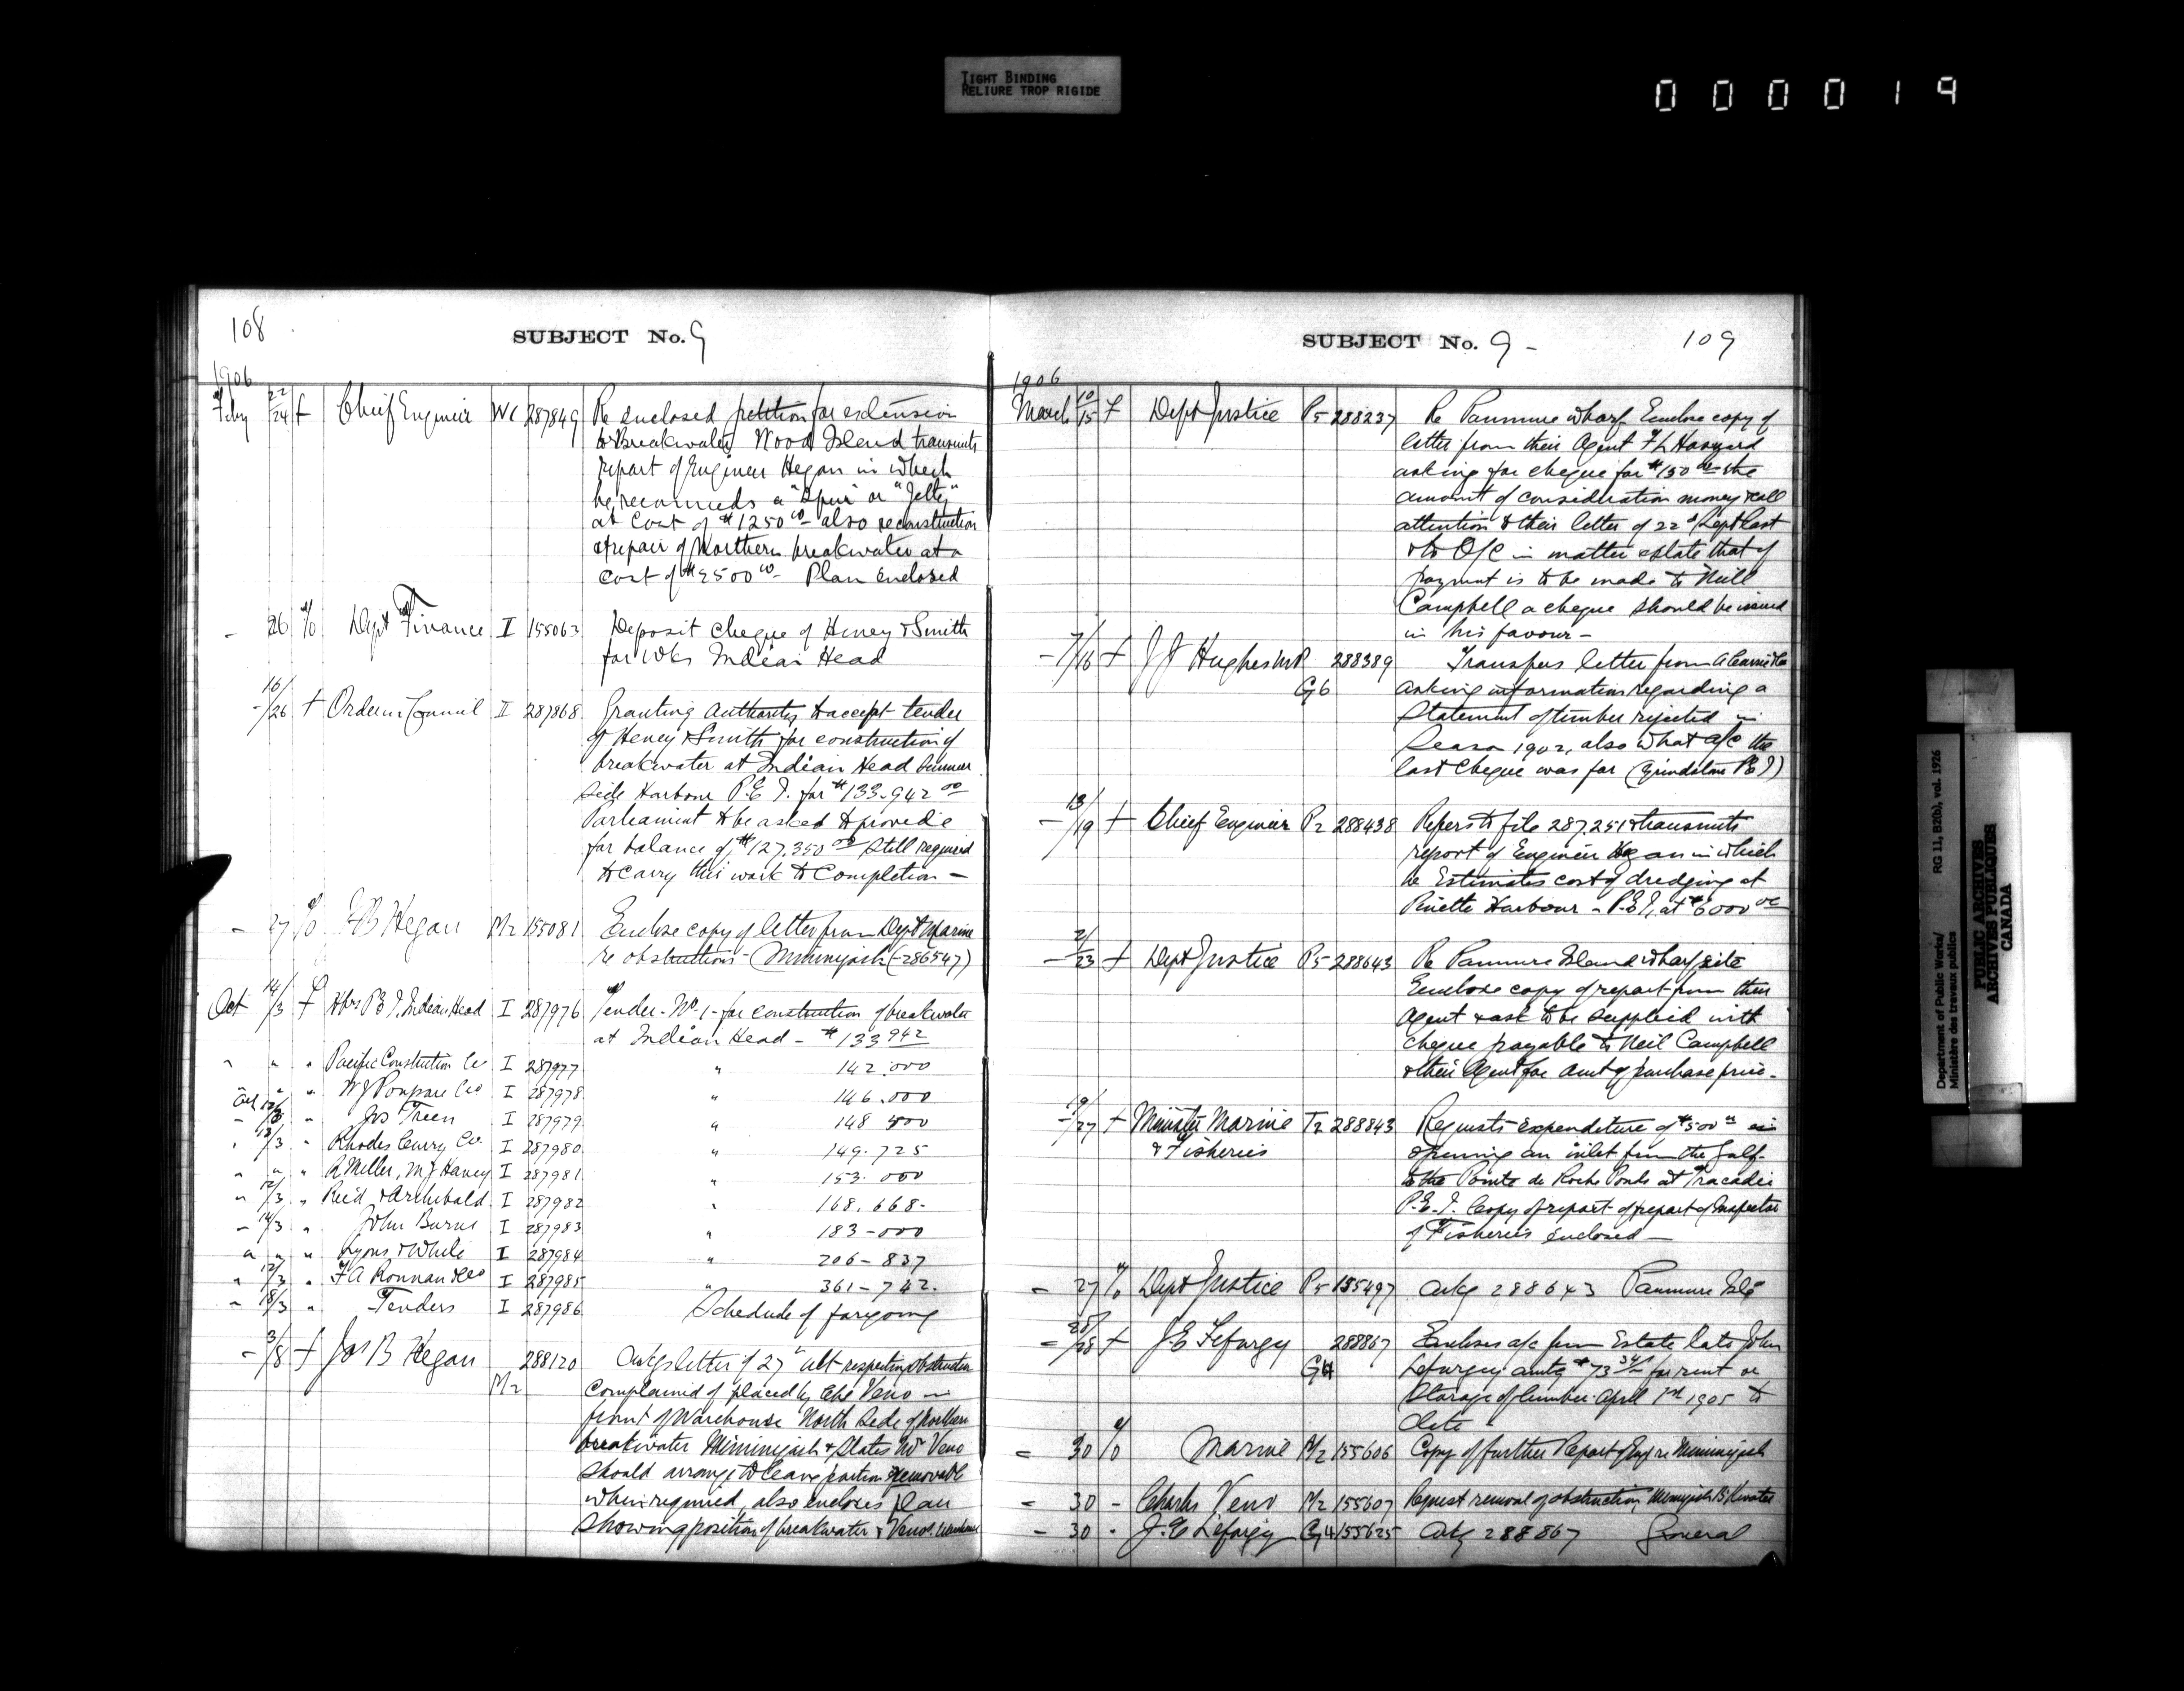 TIGHT BINDING
RELIURE TROP RIGIDE
000019
108
SUBJECT No. 9
1906
Feby 22/24 f Chief Engineer W1 287849 Re enclosed petition for extension
to Breakwater Wood Island transmits
report of Engineer Hegan in which
he recommends a "Spur" or "Jetty"
at cost of $1250 00 also reconstruction
& repair of Northern breakwater at a
cost of $2500 00 - Plan Enclosed
- 26 o/o Dept Finance I 155063 Deposit cheque of Heney & Smith
for Wks Indian Head
- 16/26 f Order in Council II 287868 Granting Authority to accept tender
of Heney & Smith for construction of
breakwater at Indian Head Summer
side Harbour P.E.I. for $133.942 00
Parliament to be asked to provide
for balance of $127.350 00 still required
to carry this work to Completion -
- 27 o/o J B Hegan M2 155081 Enclose copy of letter from Dept Marine
re obstructions - (Miminigash (-286547)
Oct 14/3 f Hbrs P.E.I. Indian Head I 287976 Tender - No-1- for construction of breakwater
at Indian Head - $133942
" " " Pacific Construction Co I 287977 " 142.000
" " W J Poupore Co I 287978 " 146.000
" Jos Treen I 287979 " 148 400
" 13/3 " Rhodes Curry Co. I 287980 " 149.725
" " " R Miller, M J Haney I 287981 " 153.000
" 12/3 " Reid & Archibald I 287982 " 168.668-
- 14/3 " John Burns I 287983 " 183-000
" " " Lyons & White I 287984 " 206-837
" 12/3 " F A Ronnan & Co I 287985 " 361-742.
- 18/3 " Tenders I 287986 Schedule of foregoing
- 3/8 f Jos B Hegan 288120 Ackgs letter of 27" ult respecting obstruction
M2 Complained of placed by Chs Veno in
front of Warehouse North side of Northern
breakwater Miminigash & States Mr Veno
should arrange to leave portion removable
when required, also encloses plan
showing position of breakwater & Veno's Warehouse
SUBJECT No. 9 -
109
1906
March 10/15 f Dept Justice P5 288237 Re Panmure wharf Enclose copy of
letter from their Agent F L Haszard
asking for cheque for $150 00 the
amount of consideration money & call
attention to their letter of 22d Sept last
& to O/C in matter & state that if
payment is to be made to Neill
Campbell a cheque should be issued
in his favour -
- 7/16 f J J Hughes M.P. 288389 Transfers letter from
G6 asking information regarding a
statement of timber rejected in
Season 1902, also what a/c the
last cheque was for (Grindstone P.E.I)
- 13/19 f Chief Engineer P2 288438 Refers to file 287.251 & transmits
report of Engineer Hegan in which
he Estimates cost of dredging at
Pinette Harbour - P.E.I, at $6000 00
- 21/23 f Dept Justice P5 288643 Re Panmure Island wharf site
Enclose copy of report from their
Agent & ask to be supplied with
cheque payable to Neil Campbell
& their Agent for amt of purchase price -
- 19/27 f Minister Marine T2 288843 Requests expenditure of $500 00 in
& Fisheries opening an inlet from the Gulf
to the Pointe de Roche Ponds at Tracadie
P.E.I. Copy of report of report of Inspector
of Fisheries enclosed -
- 27 o/o Dept Justice P5 155497 Ackg 288643 Panmure Isld
- 28/28 f J.E. Lefurgy 288867 Encloses a/c from Estate late John
G4 Lefurgey amtg $73 34/ for rent or
Storage of lumber April 1st 1905 to
date -
- 30 o/o Marine M2 155606 Copy of further Report of Engr re Miminigash
- 30 - Charles Veno M2 155607 Request removal of obstruction Miminigash B'Kwater
- 30 - J.E. Lefurgy G4 155625 Ackg 288867 General
Department of Public Works/
Ministère des travaux publics
RG 11, B2(b), vol. 1926
PUBLIC ARCHIVES
ARCHIVES PUBLIQUES
CANADA